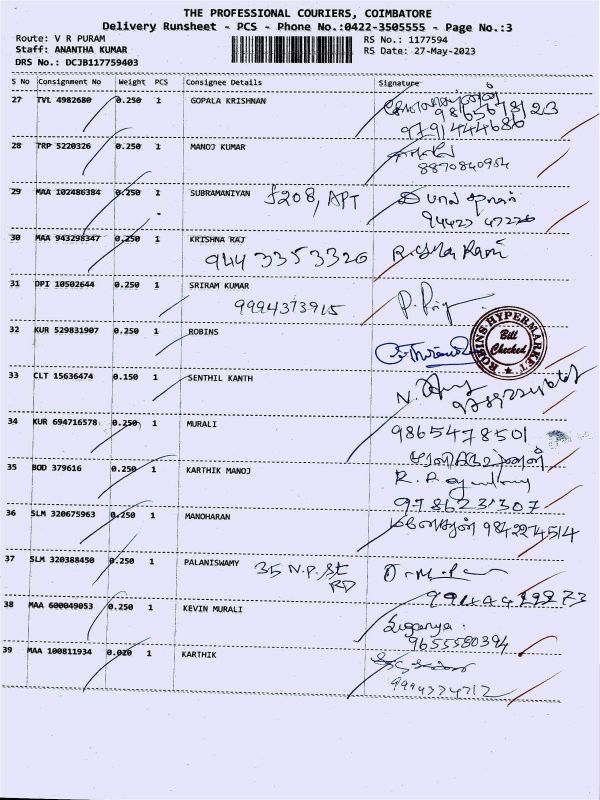 THE PROFESSIONAL COURIERS, COIMBATORE
Delivery Runsheet - PCS - Phone No.:0422-3505555 - Page No.:3
Route: V R PURAM RS No.: 1177594
Staff: ANANTHA KUMAR RS Date: 27-May-2023
DRS No.: DCJB117759403
S No Consignment No Weight PCS Consignee Details Signature
27 TVL 4982680 0.250 1 GOPALA KRISHNAN
9865678123
9791444686
28 TRP 5220326 0.250 1 MANOJ KUMAR
8870840954
29 MAA 102486384 0.250 1 SUBRAMANIYAN F208, APT
94427 47226
30 MAA 943298347 0.250 1 KRISHNA RAJ
944 3353326
31 DPI 10502644 0.250 1 SRIRAM KUMAR
9994373915
32 KUR 529831907 0.250 1 ROBINS
ROBINS HYPERMARKET
Bill
Checked
33 CLT 15636474 0.150 1 SENTHIL KANTH
34 KUR 694716578 0.250 1 MURALI
9865478501
35 BOD 379616 0.250 1 KARTHIK MANOJ
9786231307
36 SLM 320675963 0.250 1 MANOHARAN மனோகரன் 9842274514
37 SLM 320388450 0.250 1 PALANISWAMY 35 N.P. St
RD
38 MAA 600049053 0.250 1 KEVIN MURALI
Suganya:
9655580394
39 MAA 100811934 0.020 1 KARTHIK
9994374712